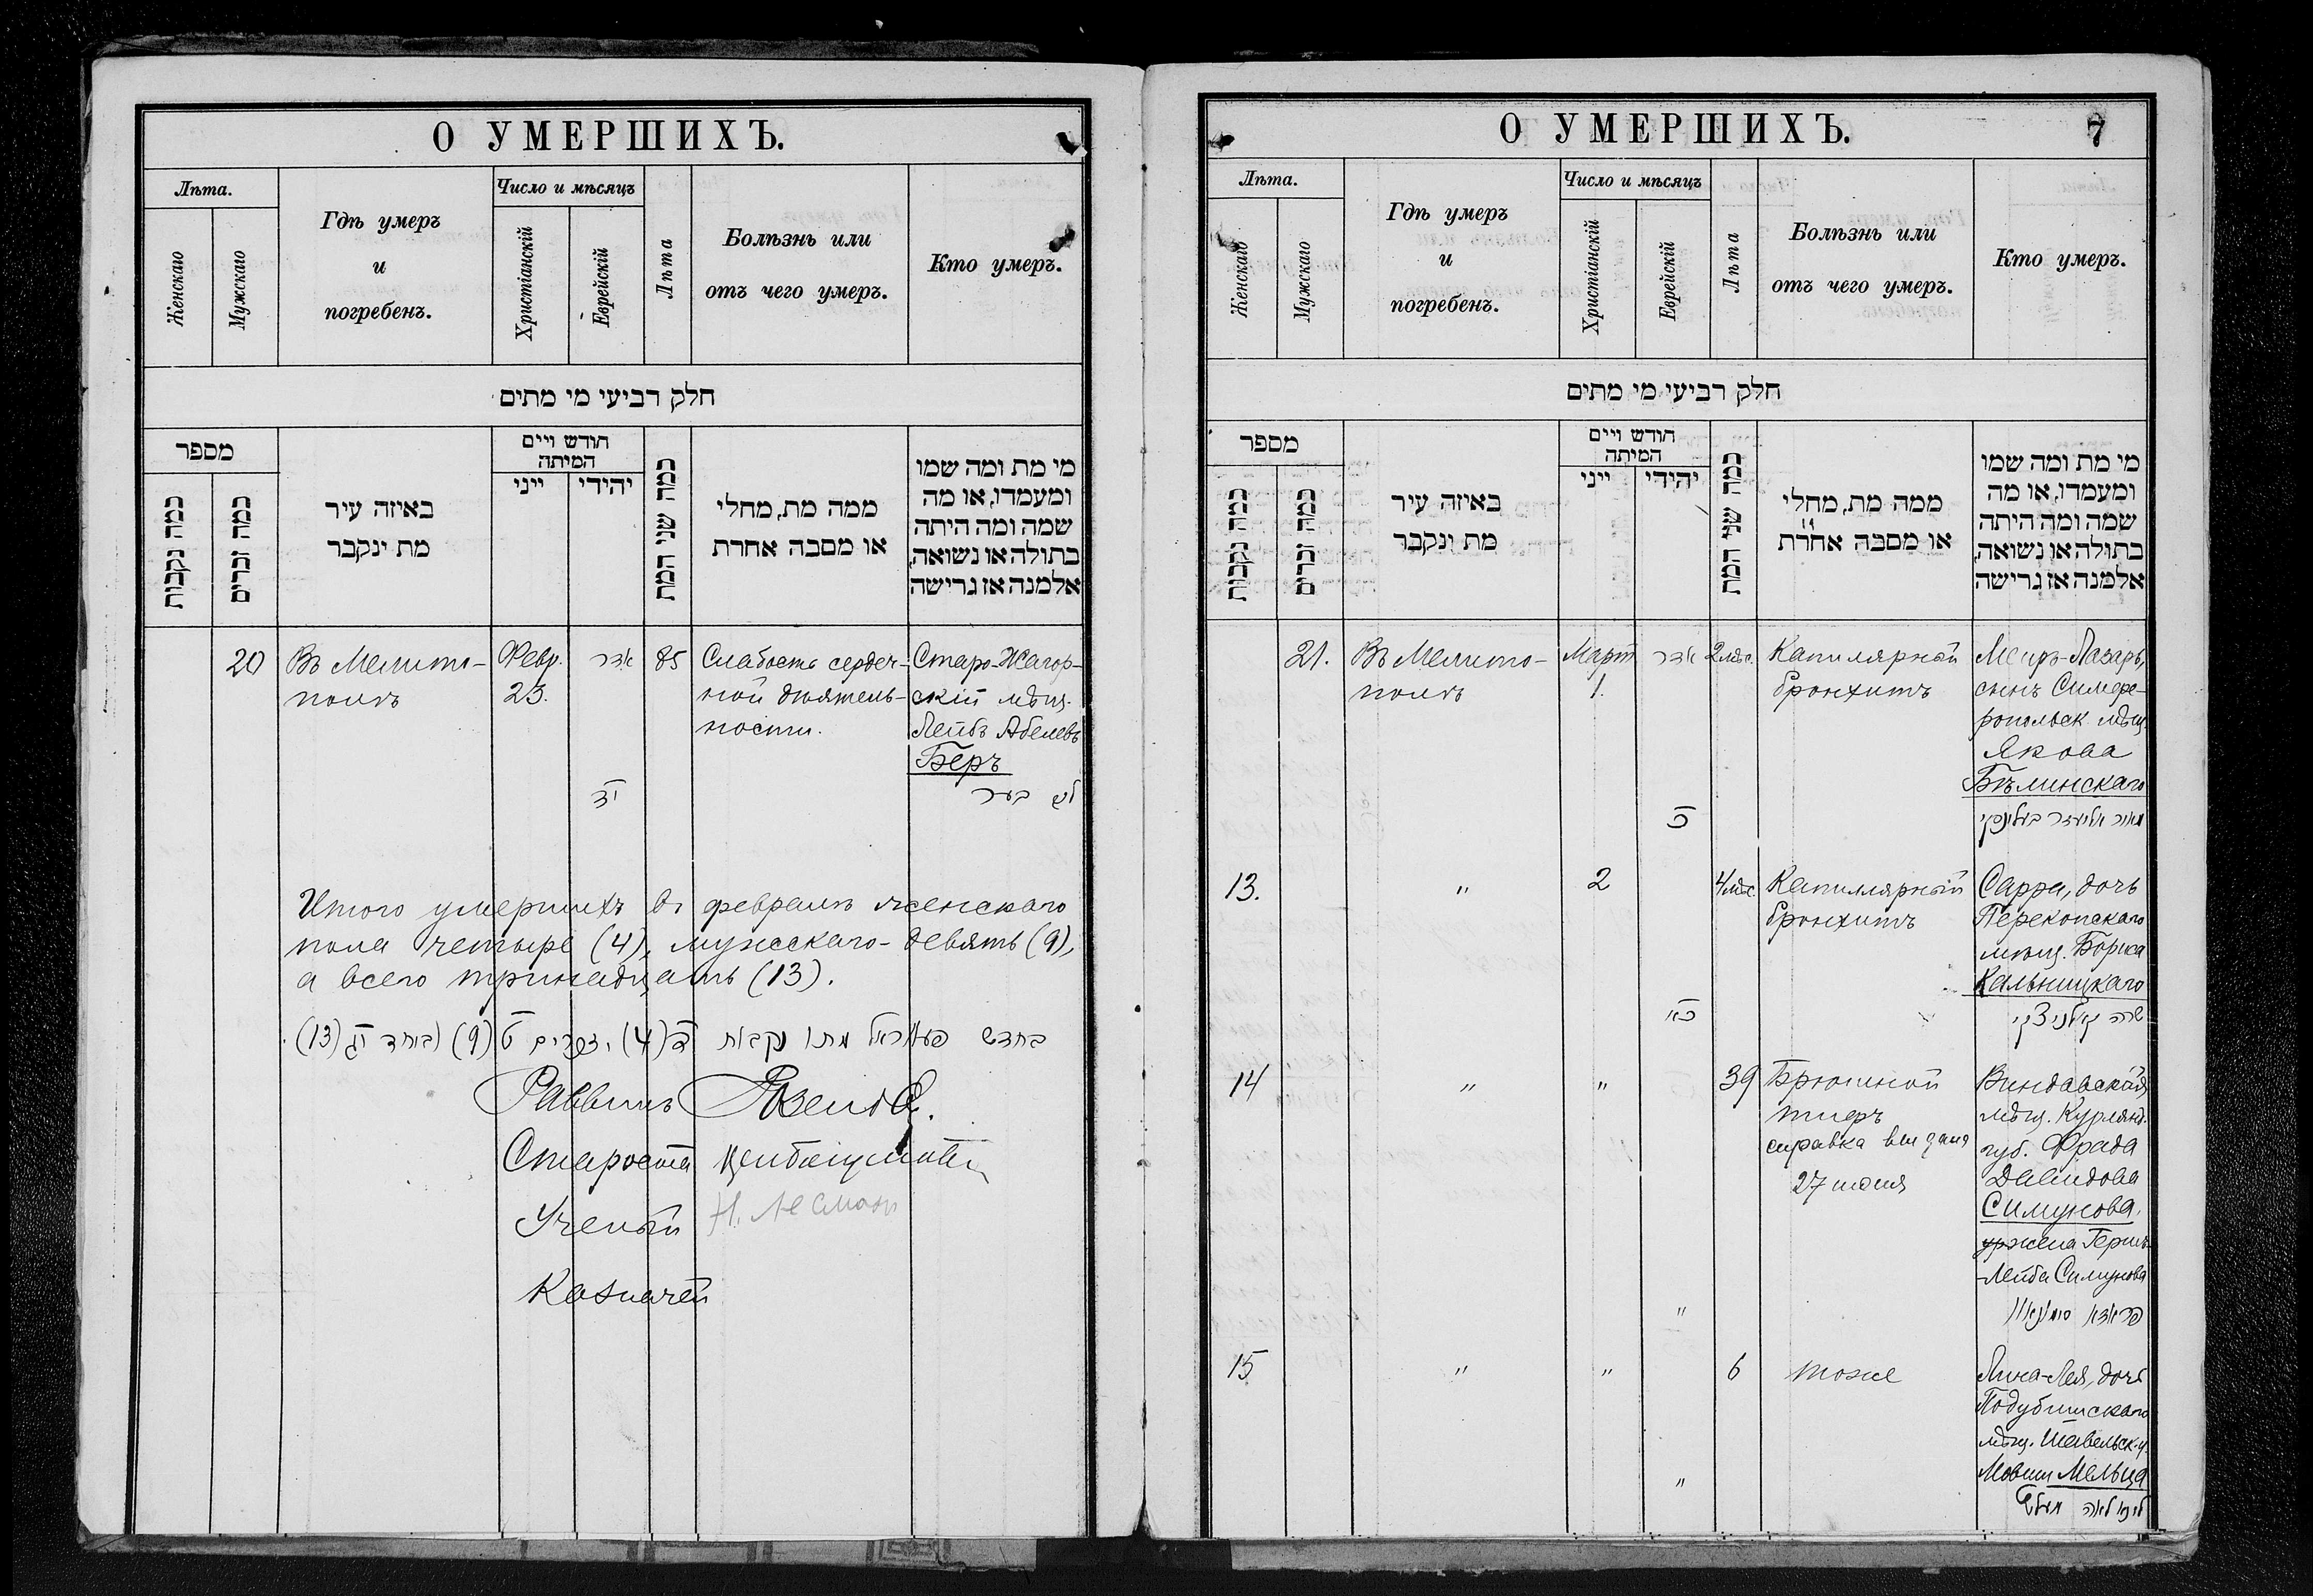 О УМЕРШИХЪ.
Лѣта.
Женскаго
Мужскаго
Гдѣ умеръ
и
погребенъ.
Число и мѣсяцъ
Христіанскій
Еврейскій
Лѣта
Болѣзнь или
отъ чего умеръ.
Кто умеръ.
חלק רביעי מי מתים
מספר
כמה נקבות
כמה זכרים
באיזה עיר
מת ינקבר
חודש ויים
המיתה
ייני
יהידי
כמה שני המת
ממה מת, מחלי
או מסבה אחרת
מי מת ומה שמו
ומעמדו, או מה
שמה ומה היתה
בתולה או נשואה,
אלמנה או גרישה
20
Въ Мелито-
полѣ
Февр.
23.
אדר
יד
85
Слабость сердеч-
ной дѣятель-
ности.
Старо-Жагор-
скій мѣщ.
Лейбъ Абелевъ
Беръ
בער
Итого умершихъ въ февралѣ женскаго
пола четыре (4), мужскаго - девять (9),
а всего тринадцать (13).
בחדש פעווראל מתו נקבות ד (4), זכרים ט (9) ביחד יג (13).
Раввинъ
Староста
Ученый
Казначей
О УМЕРШИХЪ.
7
Лѣта.
Женскаго
Мужскаго
Гдѣ умеръ
и
погребенъ.
Число и мѣсяцъ
Христіанскій
Еврейскій
Лѣта
Болѣзнь или
отъ чего умеръ.
Кто умеръ.
חלק רביעי מי מתים
מספר
כמה נקבות
כמה זכרים
באיזה עיר
מת ינקבר
חודש ויים
המיתה
ייני
יהידי
כמה שני המת
ממה מת, מחלי
או מסבה אחרת
מי מת ומה שמו
ומעמדו, או מה
שמה ומה היתה
בתולה או נשואה,
אלמנה או גרישה
21.
Въ Мелито-
полѣ
Март
1.
אדר
כ
2 мѣс.
Капилярной
бронхитъ
Меиръ-Лазарь,
сынъ Симфе-
ропольск. мѣщ.
Якова
Бѣлинскаго
מאיר אליעזר בעלינסקי
13.
"
2
כא
4 мѣс.
Капиллярный
бронхитъ
Сарра, дочь
Перекопскаго
мѣщ. Борка
Кальницкаго
שרה קאלניצקי
14
"
"
"
39
Брюшной
тифъ
справка выдана
27 июня
Виндавская
мѣщ. Курлянд.
губ. Фрада
Давидова
Симунова,
жена Гершъ-
-Лейба Симунова
פראדא סימונאוו
15
"
"
"
6
тоже
Лина-Лея, дочь
Подубинскаго
мѣщ. Шавельск. у.
Мовши Мельца
לינא לאה מעלץ